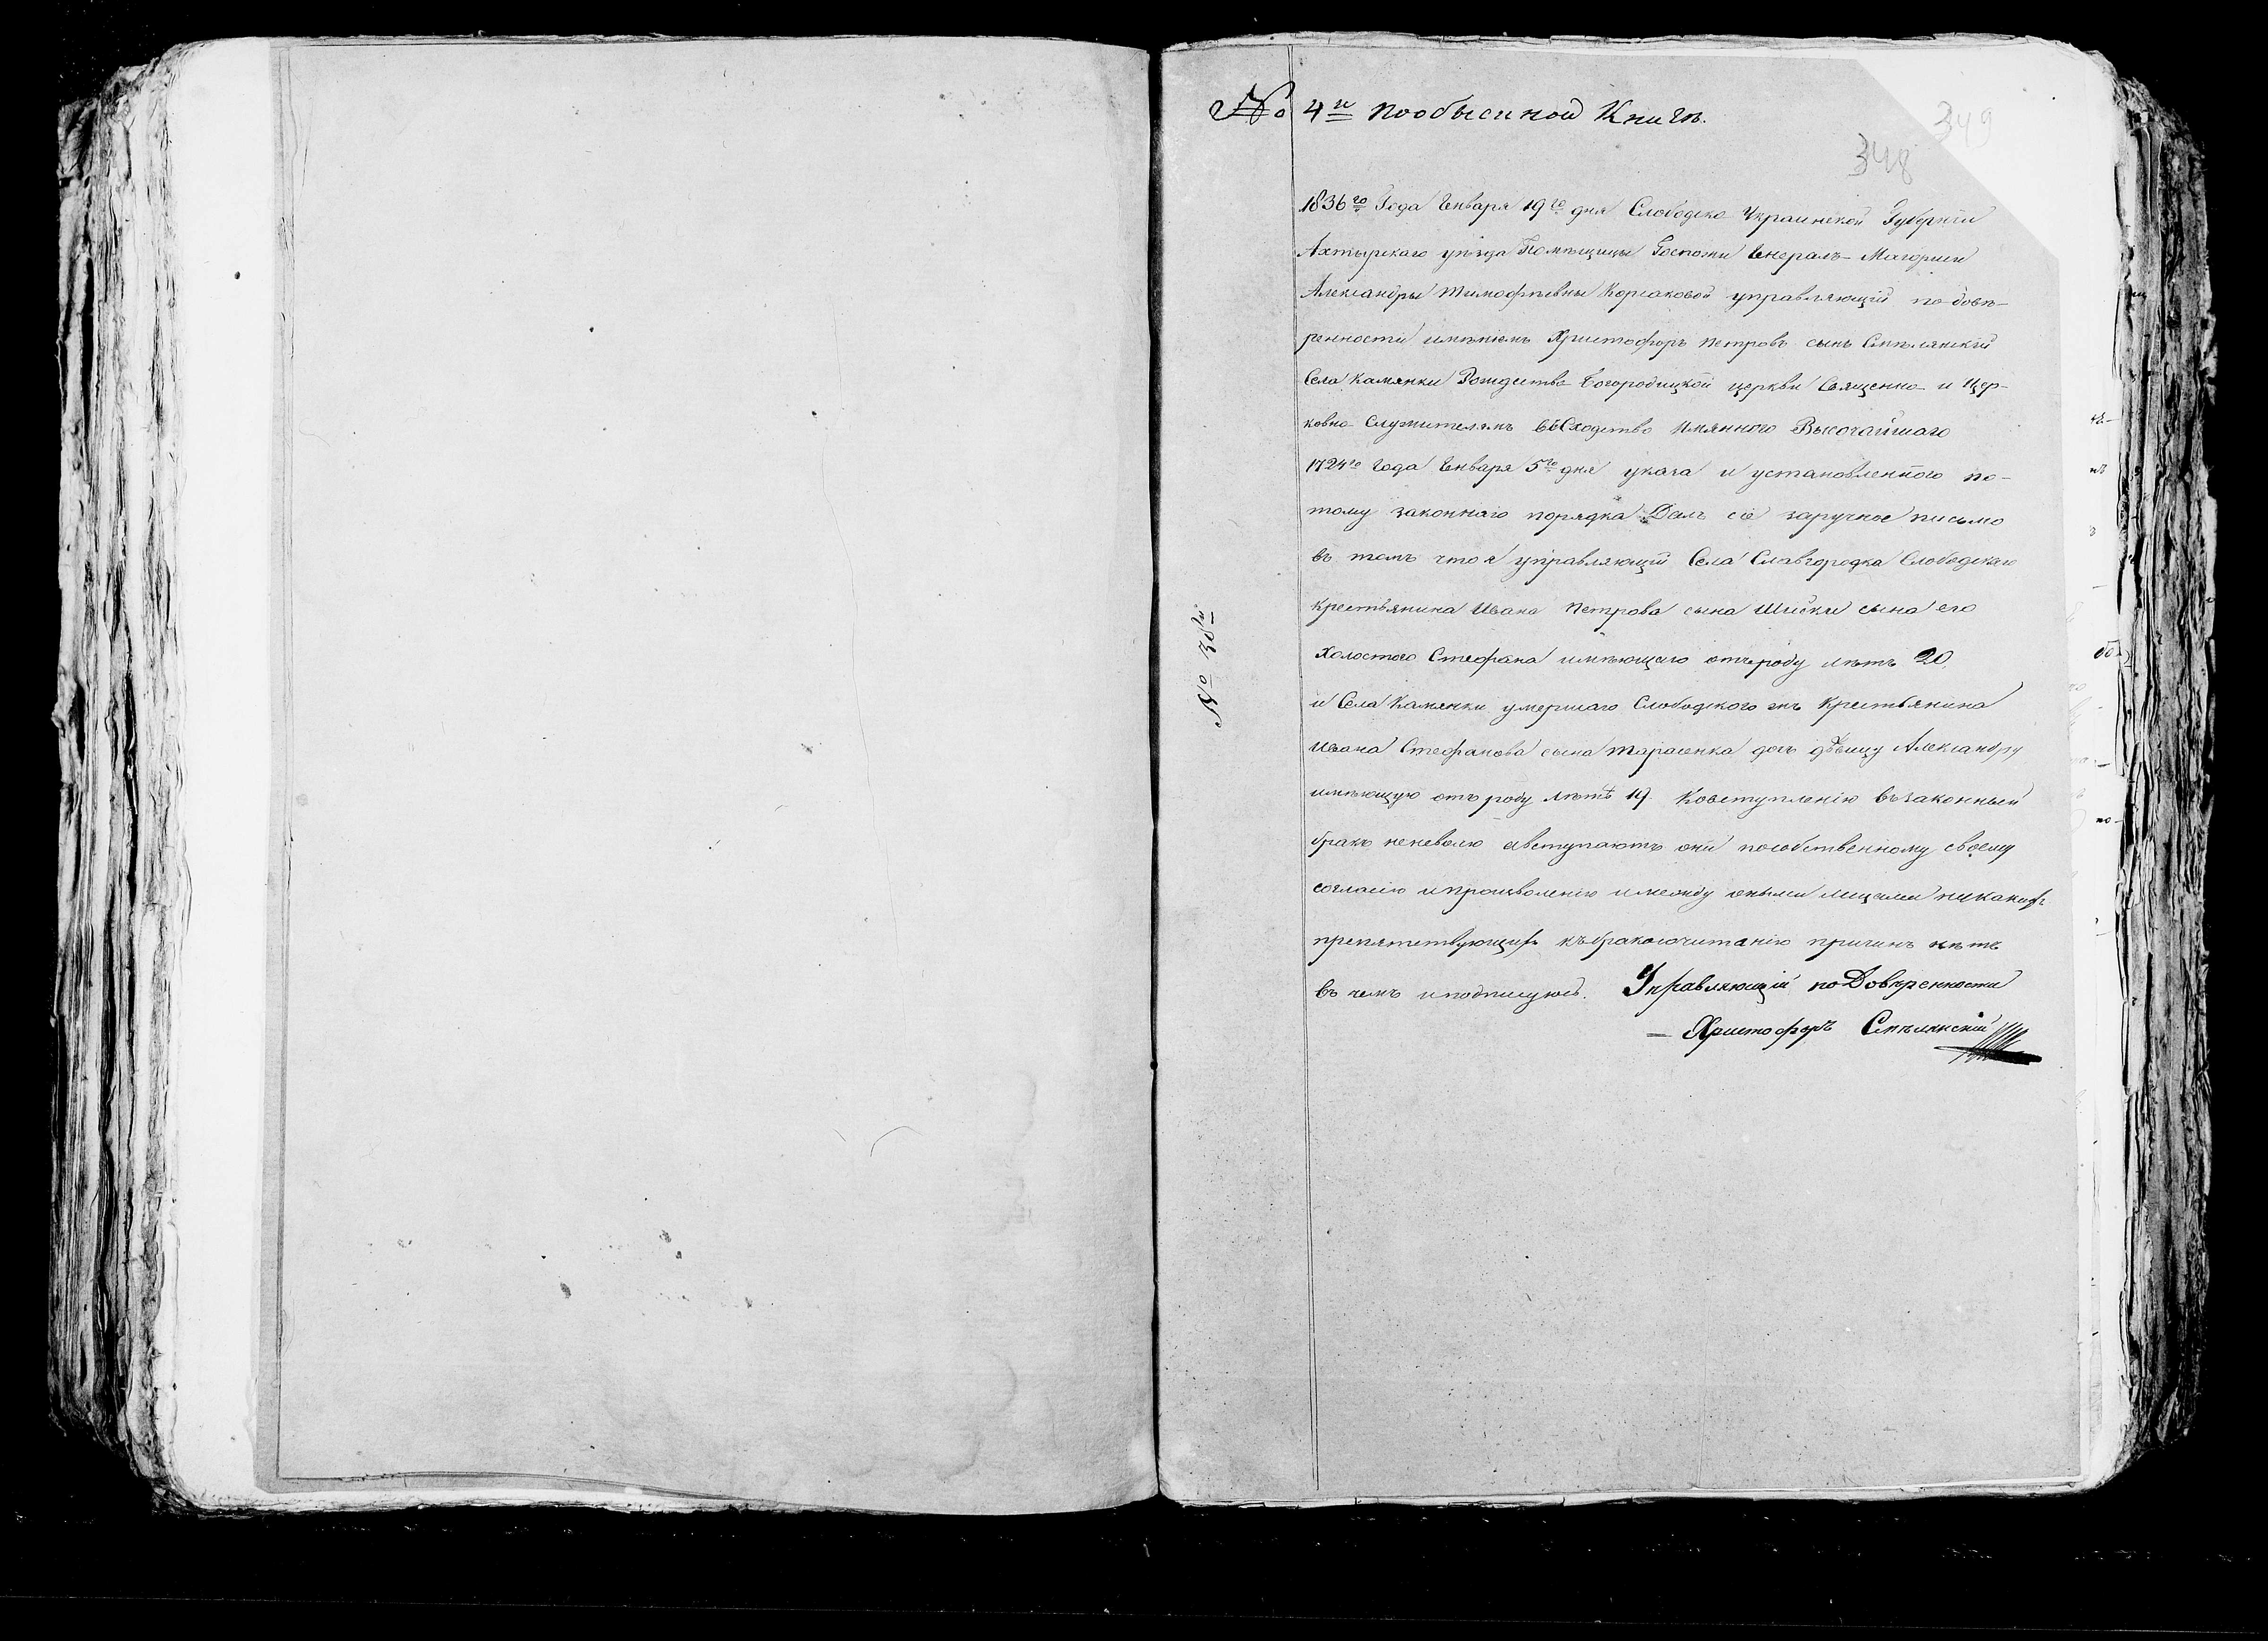 № 4й пообыскной Книгѣ.
349
348
1836го Года Генваря 19го дня Слободско Украинской Губерніи
Ахтырскаго уѣзда Помѣщицы Госпожи Генералъ-Маіорши
Александры Тимофѣевны Корсаковой управляющій по довѣ-
ренности имѣніемъ Христофоръ Петровъ сынъ Смѣлянскій
Села Камянки Рождества Богородицкой церкви Священно- и Цер-
ковно- Служителямъ въ Сходство Имяннаго Высочайшаго
1724го Года Генваря 5го дня указа и установленного по-
тому законнаго порядка Далъ сіе заручное письмо
въ томъ что я управляющій Села Славгородка Слободскаго
крестьянина Ивана Петрова сына Шийки сына его
Холостого Стефана имѣющаго отъ роду лѣтъ 20.
и Села Камянки умершаго Слободского Крестьянина
Ивана Стефанова сына Тарасенка дочь дѣвицу Александру
имѣющую отъ роду лѣтъ 19. Ковступленію взаконный
бракъ неневолю авступаютъ они пособственному своему
согласію ипроизволенію имежду оными лицами никакихъ
препятствующихъ къбракосочитанію причинъ нѣтъ
въ чемъ иподписуюсь. Управляющій по Довѣренности
— Христофоръ Смѣлянскій
№ 38й